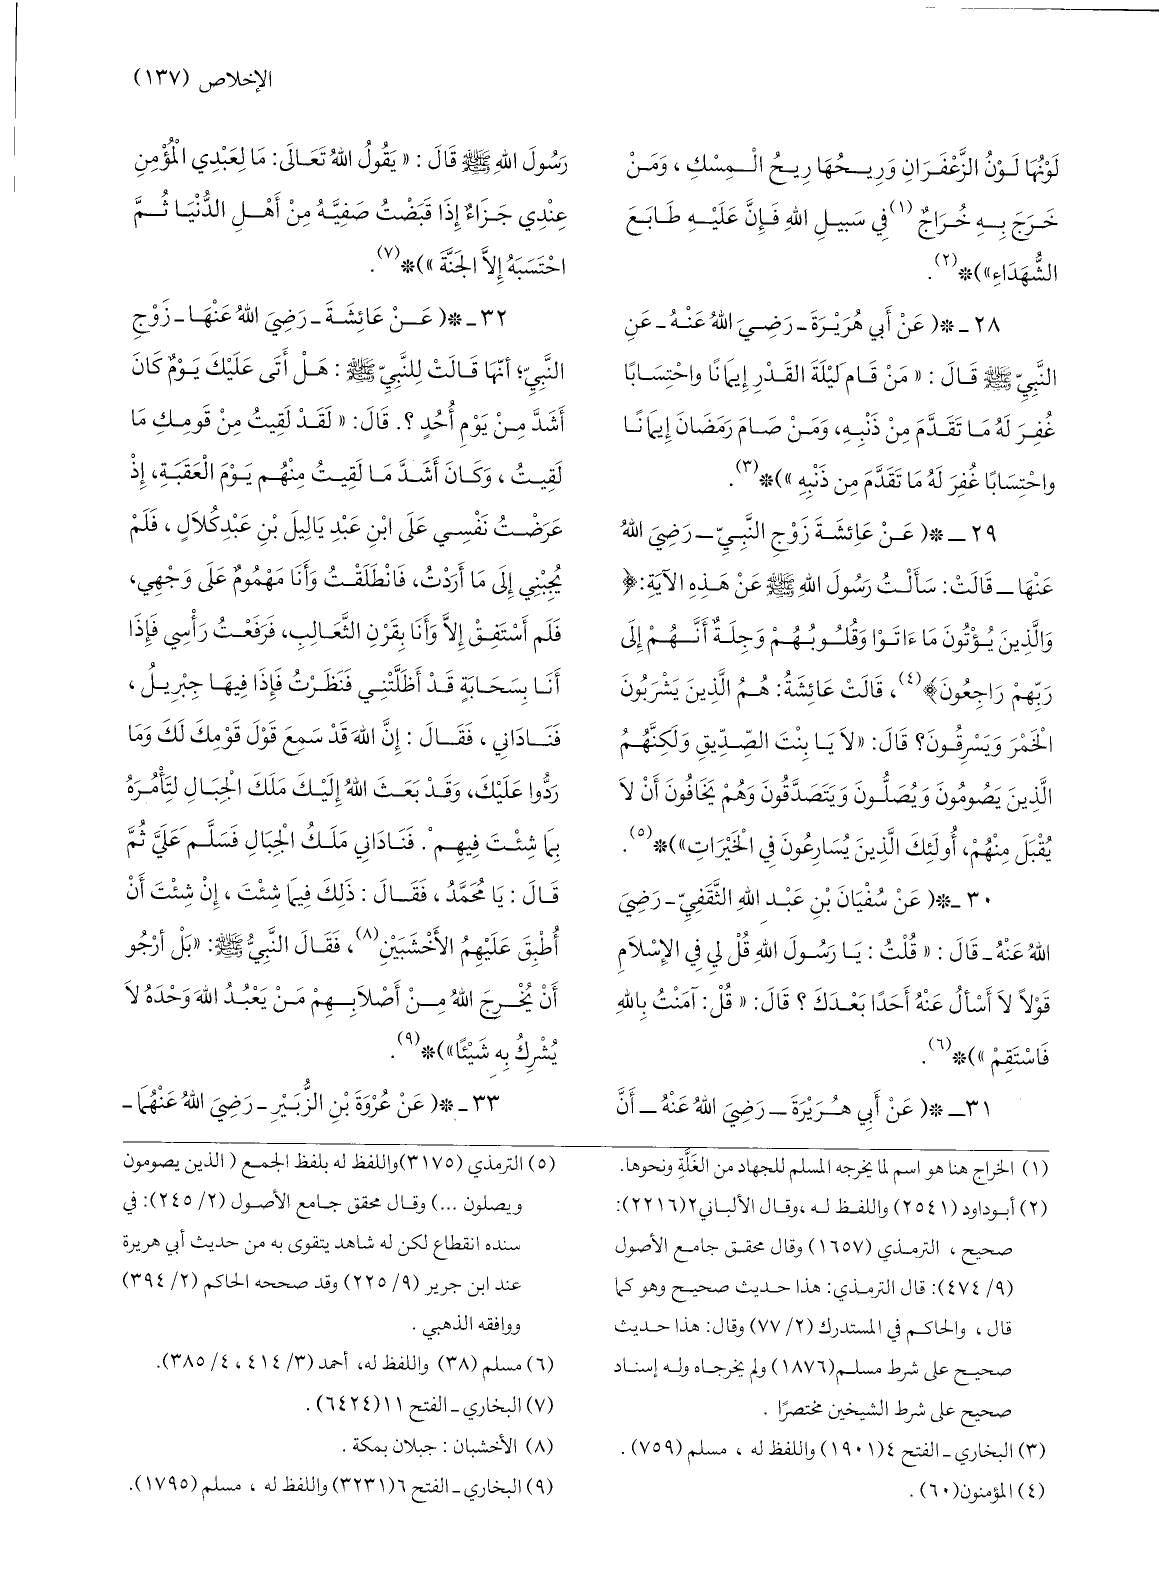 الإخلاص (١٣٧)
لَوْنُهَا لَوْنُ الزَّعْفَرَانِ وَرِيحُهَا رِيحُ الْمِسْكِ ، وَمَنْ
خَرَجَ بِهِ خُرَاجٌ (١) فِي سَبِيلِ اللهِ فَإِنَّ عَلَيْهِ طَابَعَ
الشُّهَدَاءِ»)* (٢).
٢٨ـ *( عَنْ أَبِي هُرَيْرَةَ ـ رَضِيَ اللهُ عَنْهُ ـ عَنِ
النَّبِيِّ ﷺ قَالَ : « مَنْ قَامَ لَيْلَةَ القَدْرِ إِيمَانًا واحْتِسَابًا
غُفِرَ لَهُ مَا تَقَدَّمَ مِنْ ذَنْبِهِ، وَمَنْ صَامَ رَمَضَانَ إِيمَانًا
واحْتِسَابًا غُفِرَ لَهُ مَا تَقَدَّمَ مِن ذَنْبِهِ »)* (٣).
٢٩ ـ *( عَنْ عَائِشَةَ زَوْجِ النَّبِيِّ ـ رَضِيَ اللهُ
عَنْهَا ـ قَالَتْ: سَأَلْتُ رَسُولَ اللهِ ﷺ عَنْ هَذِهِ الآيَةِ: ﴿
وَالَّذِينَ يُؤْتُونَ مَا ءَاتَوْا وَقُلُوبُهُمْ وَجِلَةٌ أَنَّهُمْ إِلَى
رَبِّهِمْ رَاجِعُونَ﴾ (٤) ، قَالَتْ عَائِشَةُ: هُمُ الَّذِينَ يَشْرَبُونَ
الْخَمْرَ وَيَسْرِقُونَ؟ قَالَ: «لاَ يَا بِنْتَ الصِّدِّيقِ وَلَكِنَّهُمُ
الَّذِينَ يَصُومُونَ وَيُصَلُّونَ وَيَتَصَدَّقُونَ وَهُمْ يَخَافُونَ أَنْ لاَ
يُقْبَلَ مِنْهُمْ، أُولَئِكَ الَّذِينَ يُسَارِعُونَ فِي الْخَيْرَاتِ»)* (٥).
٣٠ ـ *( عَنْ سُفْيَانَ بْنِ عَبْدِ اللهِ الثَّقَفِيِّ ـ رَضِيَ
اللهُ عَنْهُ ـ قَالَ : « قُلْتُ : يَا رَسُولَ اللهِ قُلْ لِي فِي الإِسْلَامِ
قَوْلاً لاَ أَسْأَلُ عَنْهُ أَحَدًا بَعْدَكَ ؟ قَالَ: « قُلْ: آمَنْتُ بِاللهِ
فَاسْتَقِمْ »)* (٦).
٣١ـ *( عَنْ أَبِي هُرَيْرَةَ ـ رَضِيَ اللهُ عَنْهُ ـ أَنَّ
رَسُولَ اللهِ ﷺ قَالَ : « يَقُولُ اللهُ تَعَالَى: مَا لِعَبْدِي الْمُؤْمِنِ
عِنْدِي جَزَاءٌ إِذَا قَبَضْتُ صَفِيَّهُ مِنْ أَهْلِ الدُّنْيَا ثُمَّ
احْتَسَبَهُ إِلاَّ الْجَنَّةَ »)* (٧).
٣٢ ـ *( عَنْ عَائِشَةَ ـ رَضِيَ اللهُ عَنْهَا ـ زَوْجِ
النَّبِيِّ؛ أَنَّهَا قَالَتْ لِلنَّبِيِّ ﷺ : هَلْ أَتَى عَلَيْكَ يَوْمٌ كَانَ
أَشَدَّ مِنْ يَوْمِ أُحُدٍ ؟. قَالَ: « لَقَدْ لَقِيتُ مِنْ قَومِكِ مَا
لَقِيتُ ، وَكَانَ أَشَدَّ مَا لَقِيتُ مِنْهُم يَوْمَ الْعَقَبَةِ، إِذْ
عَرَضْتُ نَفْسِي عَلَى ابْنِ عَبْدِ يَالِيلَ بْنِ عَبْدِ كُلاَلٍ ، فَلَمْ
يُجِبْنِي إِلَى مَا أَرَدْتُ، فَانْطَلَقْتُ وَأَنَا مَهْمُومٌ عَلَى وَجْهِي،
فَلَم أَسْتَفِقْ إِلاَّ وَأَنَا بِقَرْنِ الثَّعَالِبِ، فَرَفَعْتُ رَأْسِي فَإِذَا
أَنَا بِسَحَابَةٍ قَدْ أَظَلَّتْنِي فَنَظَرْتُ فَإِذَا فِيهَا جِبْرِيلُ ،
فَنَادَانِي ، فَقَالَ : إِنَّ اللهَ قَدْ سَمِعَ قَوْلَ قَوْمِكَ لَكَ وَمَا
رَدُّوا عَلَيْكَ، وَقَدْ بَعَثَ اللهُ إِلَيْكَ مَلَكَ الْجِبَالِ لِتَأْمُرَهُ
بِمَا شِئْتَ فِيهِمْ . فَنَادَانِي مَلَكُ الْجِبَالِ فَسَلَّمَ عَلَيَّ ثُمَّ
قَالَ : يَا مُحَمَّدُ ، فَقَالَ : ذَلِكَ فِيمَا شِئْتَ ، إِنْ شِئْتَ أَنْ
أُطْبِقَ عَلَيْهِمُ الأَخْشَبَيْنِ (٨) ، فَقَالَ النَّبِيُّ ﷺ: «بَلْ أَرْجُو
أَنْ يُخْرِجَ اللهُ مِنْ أَصْلاَبِهِمْ مَنْ يَعْبُدُ اللهَ وَحْدَهُ لاَ
يُشْرِكُ بِهِ شَيْئًا»)* (٩).
٣٣ ـ *( عَنْ عُرْوَةَ بْنِ الزُّبَيْرِ ـ رَضِيَ اللهُ عَنْهُمَا ـ
(١) الخراج هنا هو اسم لما يخرجه المسلم للجهاد من الغَلَّةِ ونحوها.
(٢) أبوداود (٢٥٤١) واللفظ له ،وقال الألباني٢(٢٢١٦):
صحيح ، الترمذي (١٦٥٧) وقال محقق جامع الأصول
(٩/ ٤٧٤): قال الترمذي: هذا حديث صحيح وهو كما
قال ، والحاكم في المستدرك (٢/ ٧٧) وقال: هذا حديث
صحيح على شرط مسلم(١٨٧٦) ولم يخرجاه وله إسناد
صحيح على شرط الشيخين مختصرًا .
(٣) البخاري ـ الفتح ٤(١٩٠١) واللفظ له ، مسلم (٧٥٩) .
(٤) المؤمنون(٦٠) .
(٥) الترمذي (٣١٧٥)واللفظ له بلفظ الجمع ( الذين يصومون
ويصلون ...) وقال محقق جامع الأصول (٢/ ٢٤٥): في
سنده انقطاع لكن له شاهد يتقوى به من حديث أبي هريرة
عند ابن جرير (٩/ ٢٢٥) وقد صححه الحاكم (٢/ ٣٩٤)
ووافقه الذهبي .
(٦) مسلم (٣٨) واللفظ له، أحمد (٣/ ٤١٤ ، ٤/ ٣٨٥).
(٧) البخاري ـ الفتح ١١(٦٤٢٤) .
(٨) الأخشبان : جبلان بمكة .
(٩) البخاري ـ الفتح ٦(٣٢٣١) واللفظ له ، مسلم (١٧٩٥).